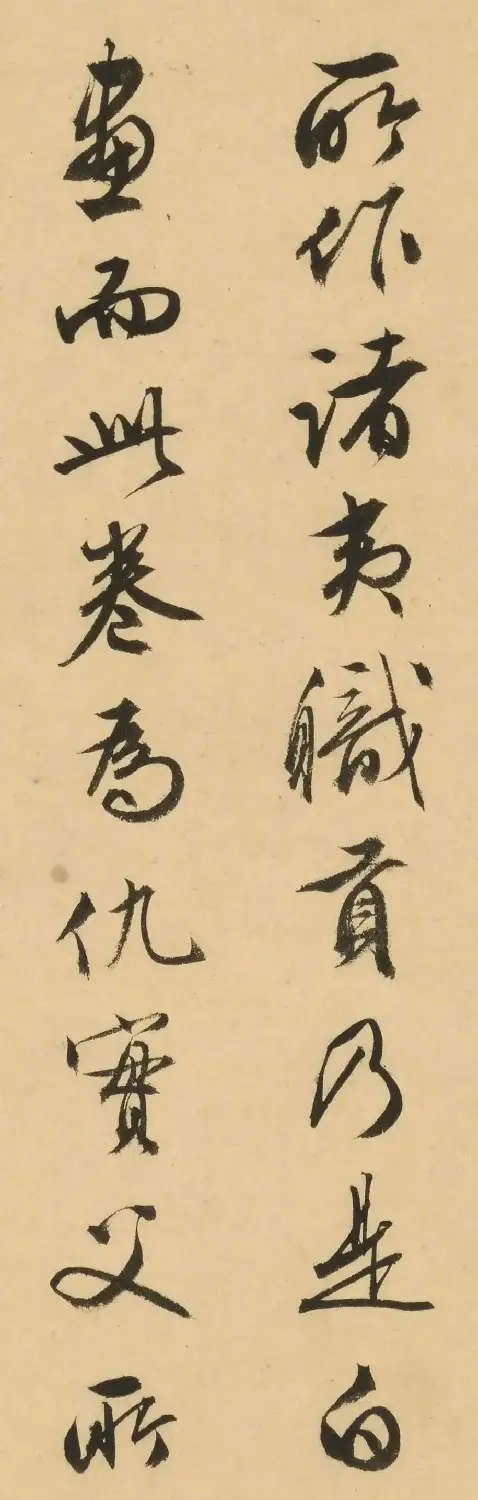 所作諸夷職貢乃是白
畫而此卷為仇實父所